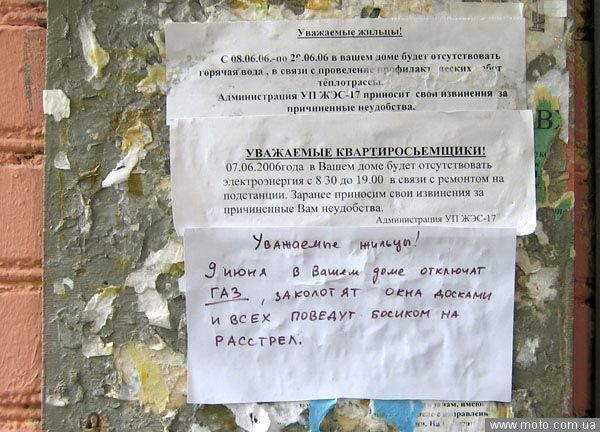 Уважаемые жильцы!
С 08.06.06.-по 20.06.06 в вашем доме будет отсутствовать
горячая вода , в связи с проведение профилактических работ
тёплотрассы.
Администрация УП ЖЭС-17 приносит свои извинения за
причиненные неудобства.
УВАЖАЕМЫЕ КВАРТИРОСЬЕМЩИКИ!
07.06.2006года в Вашем доме будет отсутствовать
электроэнергия с 8 30 до 19.00 в связи с ремонтом на
подстанции. Заранее приносим свои извинения за
причиненные Вам неудобства.
Администрация УП ЖЭС-17
Уважаемые жильцы!
9 июня в Вашем доме отключат
ГАЗ , заколотят окна досками
и всех поведут босиком на
расстрел.
В
www.moto.com.ua